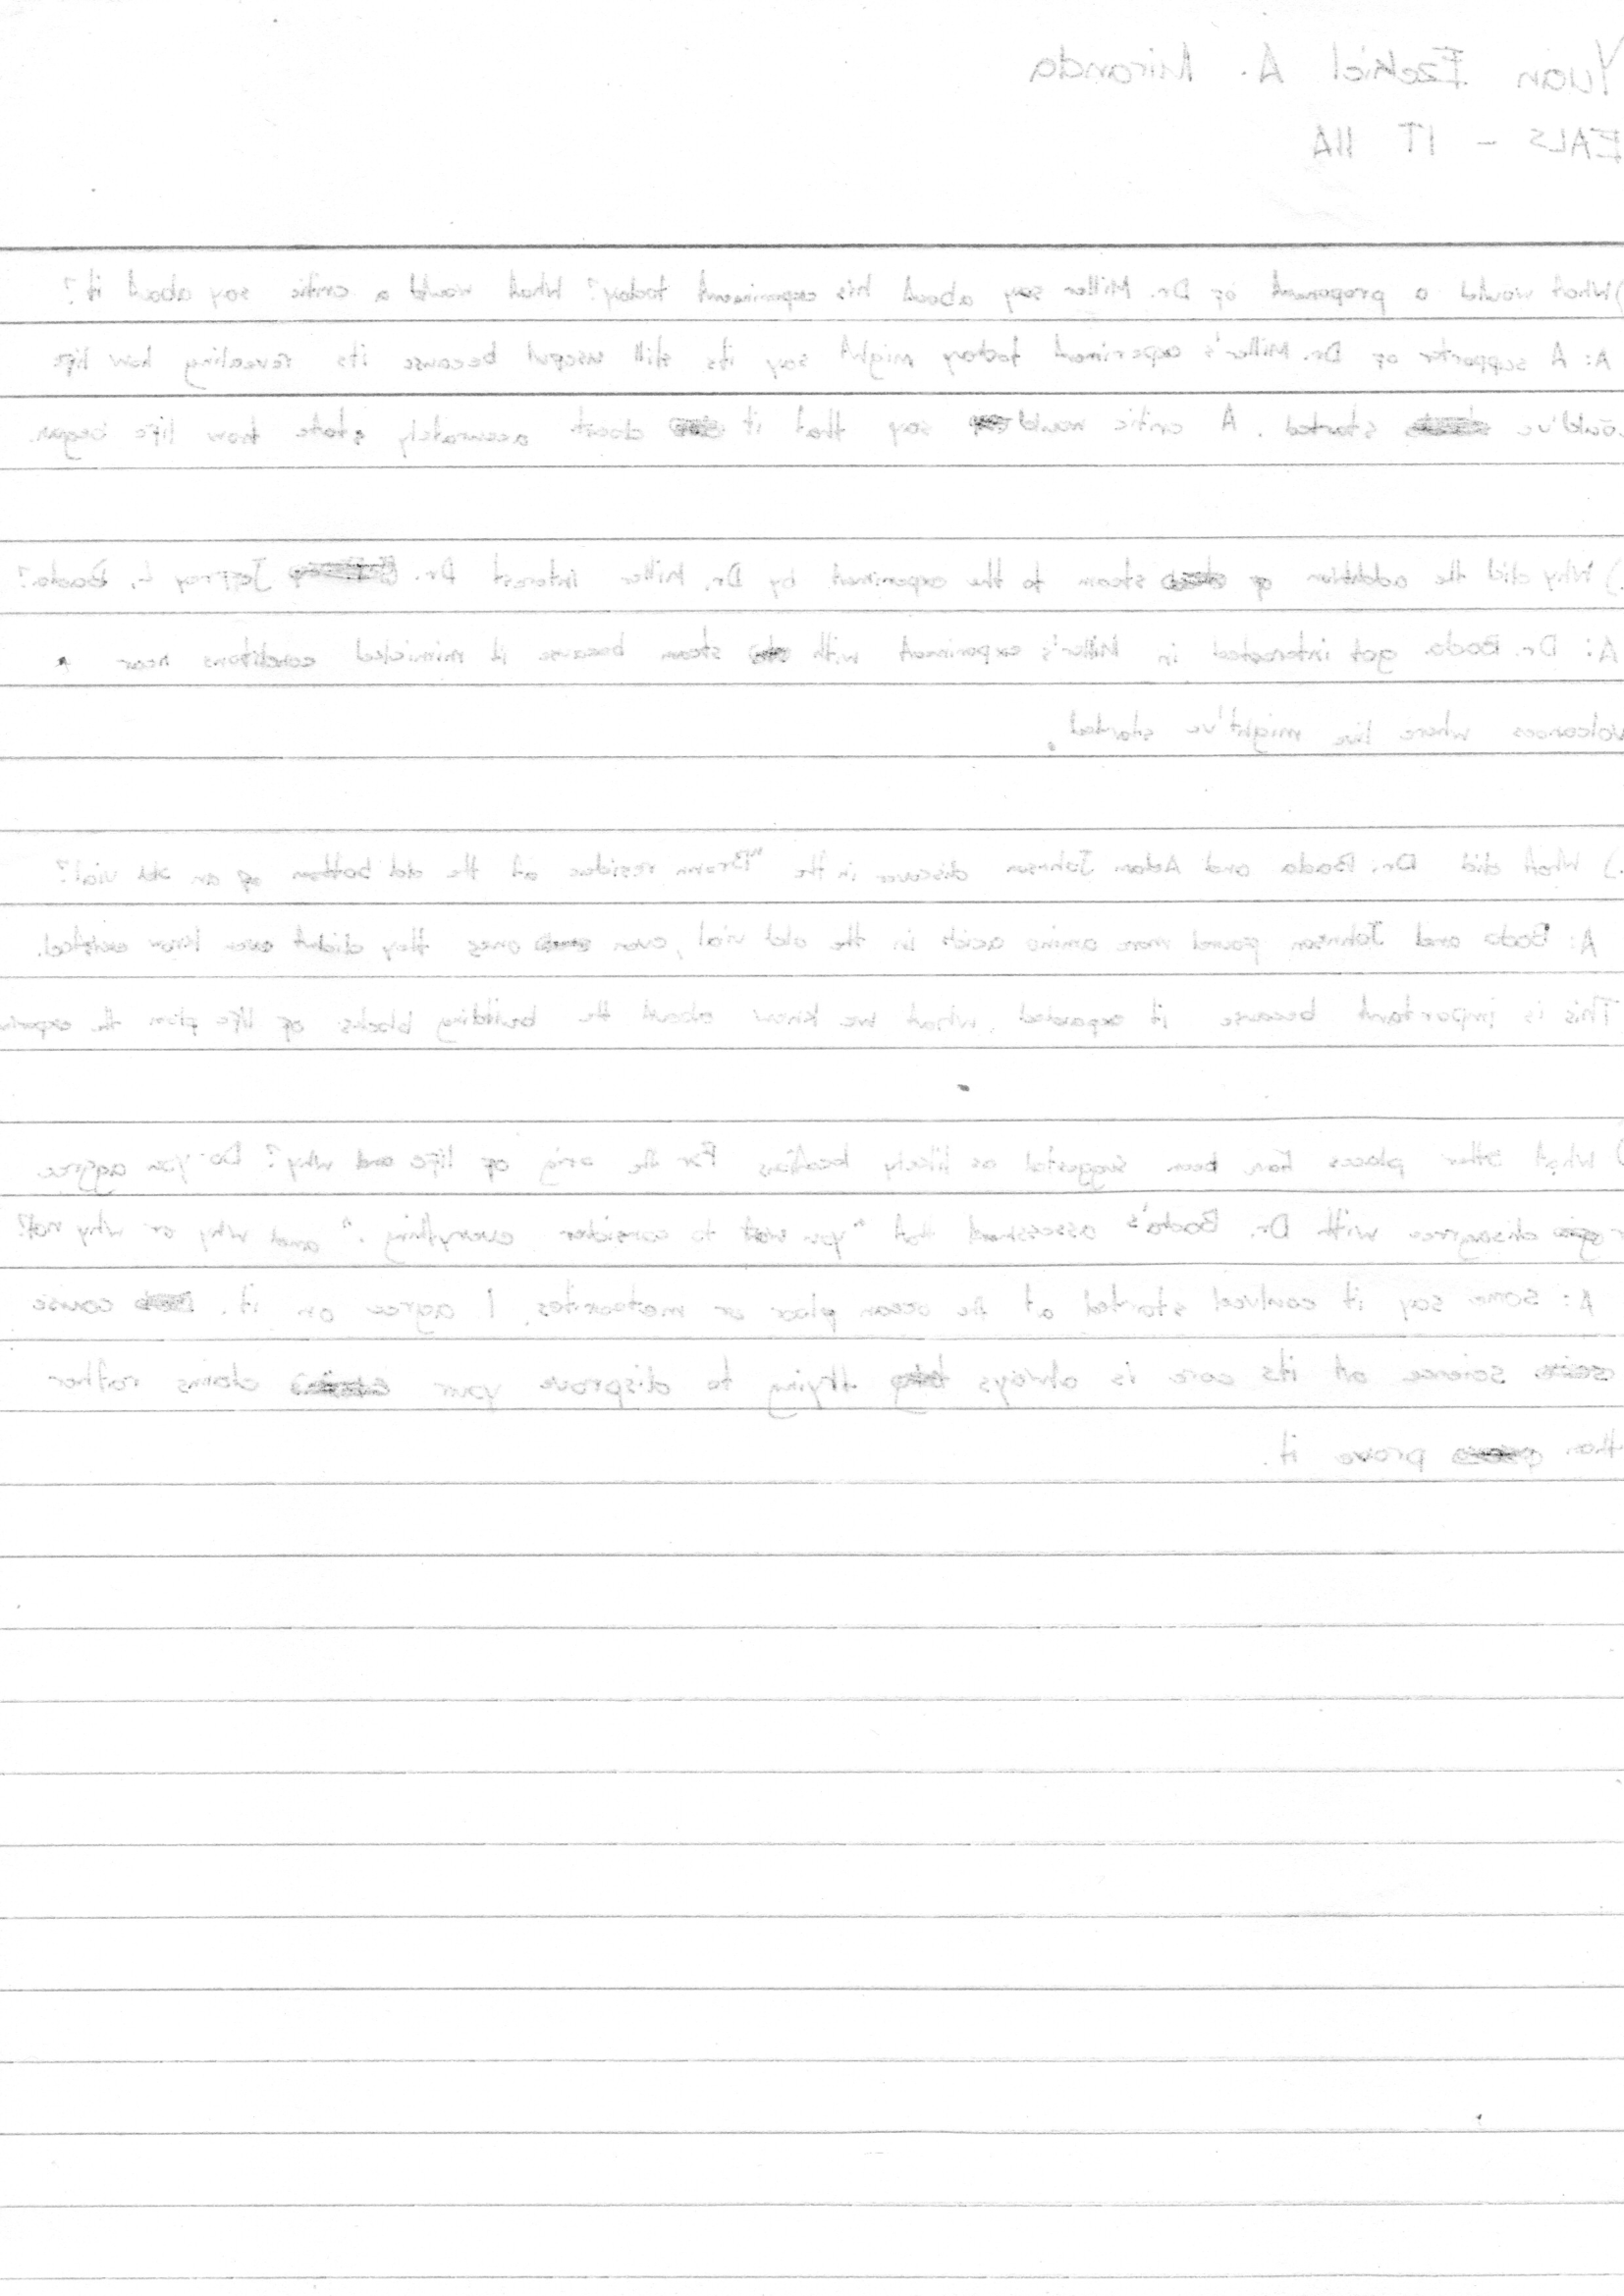 Yuan Ezekiel A. Miranda
EALS - IT 11A
) What would a proponent of Dr. Miller say about his experiment today? What would a critic say about it?
A: A supporter of Dr. Miller's experiment today might say its still useful because its revealing how life
could've started. A critic would say that it doesnt accurately state how life began.
.) Why did the addition of steam to the experiment by Dr. Miller interest Dr. Jeffrey L. Bada?
A: Dr. Bada got interested in Miller's experiment with steam because it mimicked conditions near
volcanoes where live might've started.
.) What did Dr. Bada and Adam Johnson discover in the "Brown residue at the old bottom of an old vial?
A: Bada and Johnson found more amino acids in the old vial, even ones they didn't even know existed.
This is important because it expanded what we know about the building blocks of life from the experim
) What other places have been suggested as likely locations For the orig of life and why? Do you aggree
r disagree with Dr. Bada's assessment that "you to consider everything." and why or why not?
A: Some say it couldved started at the ocean floor or meteorites. I agree on it. cause
science at its core is always trying to disprove your claims rather
than prove it.